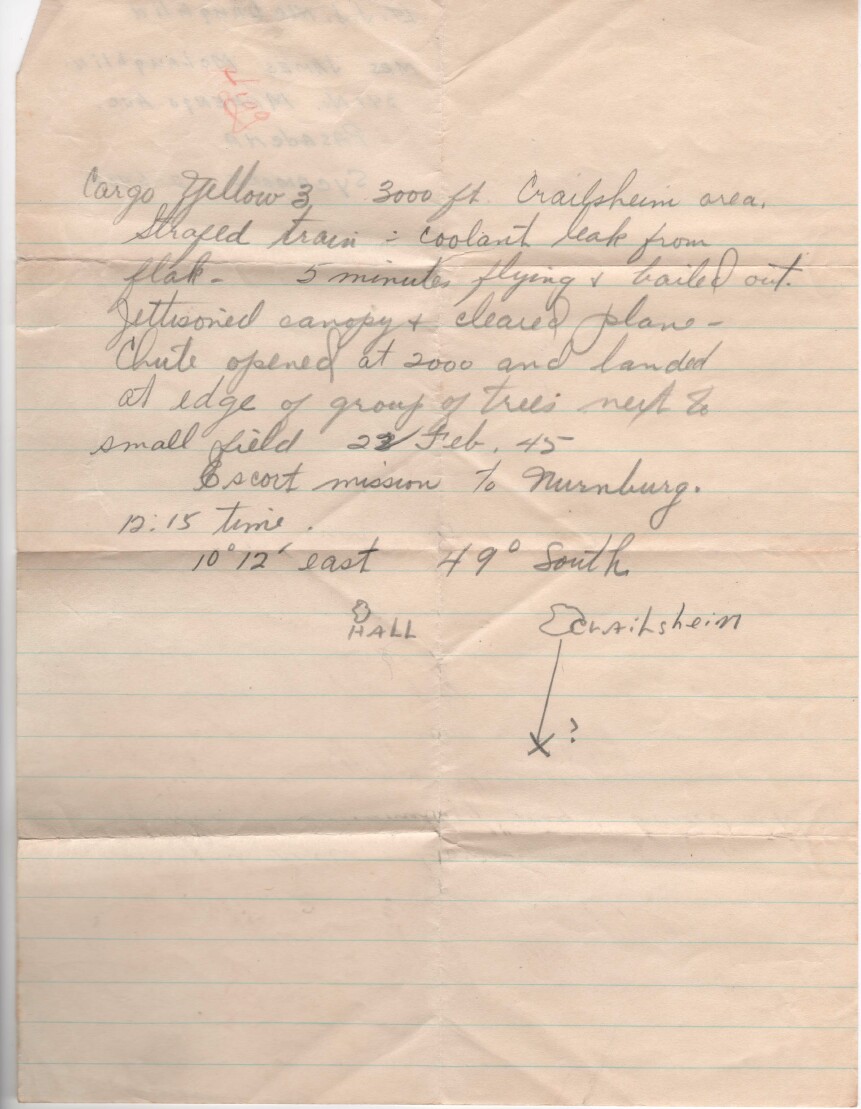 Cargo Yellow 3 3000 ft. Crailsheim area.
Strafed train - coolant leak from
flak - 5 minutes flying & bailed out.
Jettisoned canopy & cleared plane -
Chute opened at 2000 and landed
at edge of group of trees next to
small field 22 Feb. 45
Escort mission to Nurnburg.
12:15 time.
10° 12' east 49° South
HALL Crailsheim
X ?